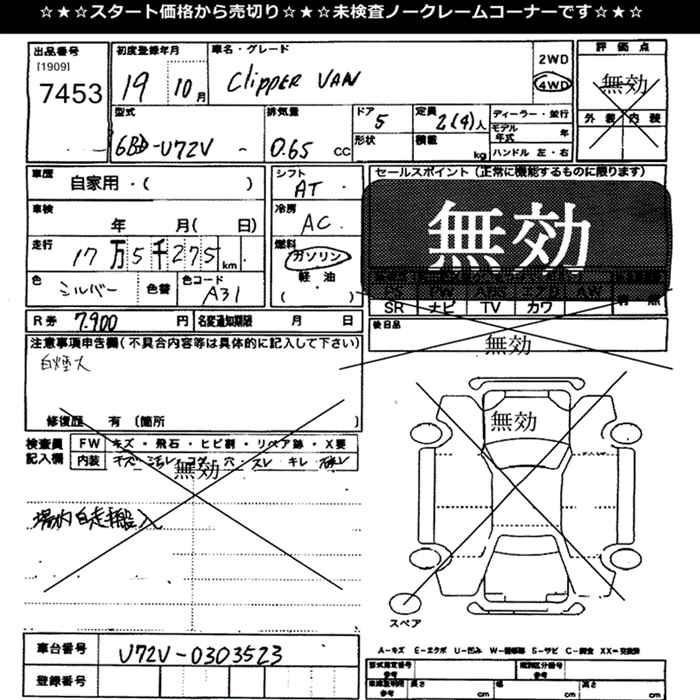 ☆★☆★スタート価格から売切り☆★☆★未検査ノークレームコーナーです☆★☆
出品番号 初度登録年月 車名・グレード 2WD 評価点
[1909]
7453 19 10月 CLIPPER VAN 4WD 無効
外装 内装
型式 排気量 ドア 定員 ディーラー・並行
5 2(4)人 モデル年式 年
6BD-U72V - 0.65 CC 形状 積載 kg ハンドル 左・右
車歴 自家用・( ) シフト AT セールスポイント(正常に機能するものに限ります)
車検 年 月( 日) 冷房 AC 無効
走行 17万5千275km 燃料 ガソリン
色 シルバー 色替 色コード A31 軽油
( )
SR ナビ TV カワ
R券 7.900 円 名変通知期限 月 日 後日品
無効
注意事項申告欄(不具合内容等は具体的に記入して下さい)
白煙大
修復歴 有 (箇所 ) 無効
検査員記入欄 FW キズ・飛石・ヒビ割・リペア跡・X要
内装 キズ 汚レ コゲ 穴 スレ キレ
無効
場内自走搬入
スペア
車台番号 U72V-0303523
A-キズ E-エクボ U-凹み W-補修跡 S-サビ C-腐食 XX=交換済
登録番号
型式指定番号 参考 類別区分番号 参考
長さ cm 幅 cm 高さ cm